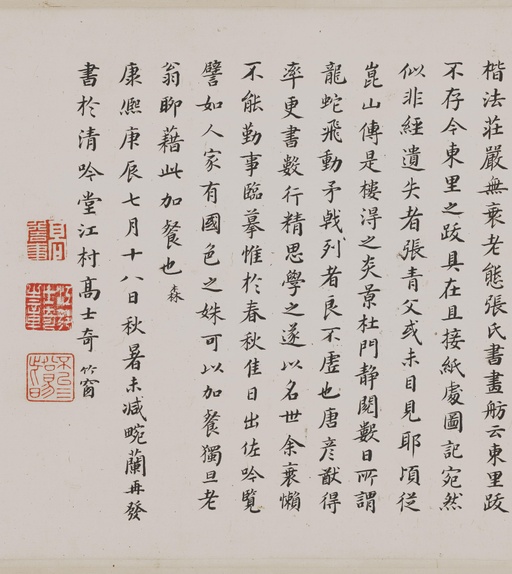 楷法莊嚴無衰老態張氏書畫舫云東里跋
不存今東里之跋具在且接紙處圖記宛然
似非經遺失者張青父或未目見耶頃從
崑山傳是樓淂之炎景杜門静閱數日所謂
龍蛇飛動矛戟列者良不虛也唐彥猷得
率更書數行精思學之遂以名世余衰懶
不能勤事臨摹惟於春秋佳日出佐吟覽
譬如人家有國色之姝可以加餐獨旦老
翁聊藉此加餐也 森
康熙庚辰七月十八日秋暑未減畹蘭再發
書於清吟堂江村髙士奇 竹窗